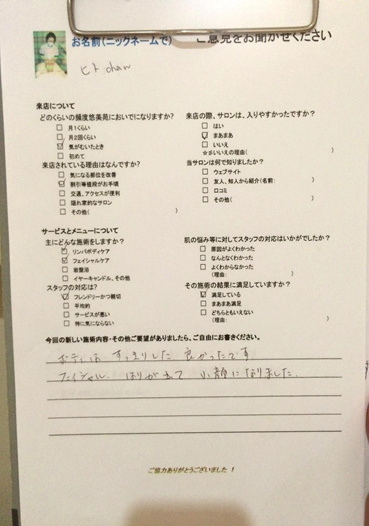 お名前(ニックネームで) ご意見をお聞かせください
ヒト chan
来店について
どのくらいの頻度悠美苑においでになりますか?
月1くらい
月2回くらい
気がむいたとき
初めて
来店されている理由はなんですか?
気になる部位を改善
割引等値段がお手頃
交通、アクセスが便利
隠れ家的なサロン
その他( )
来店の際、サロンは、入りやすかったですか?
はい
まあまあ
いいえ
※いいえの理由( )
当サロンは何で知りましたか?
ウェブサイト
友人、知人から紹介(名前: )
口コミ
その他( )
サービスとメニューについて
主にどんな施術をしますか?
リンパボディケア
フェイシャルケア
岩盤浴
イヤーキャンドル、その他
スタッフの対応は?
フレンドリーかつ親切
平均的
サービスが悪い
特に気にならない
肌の悩み等に対してスタッフの対応はいかがでしたか?
原因がよくわかった
なんとなくわかった
よくわからなかった
(理由: )
その施術の結果に満足していますか?
満足している
まあまあ満足
どちらともいえない
(理由: )
今回の新しい施術内容・その他ご要望がありましたら、ご自由にお書きください。
ボディは すっきりした 良かったです
フェイシャル はりが出て 小顔になりました。
ご協力ありがとうございました!